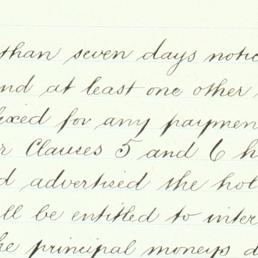 than seven days notic
nd at least one other
ixed for any paymen
r Clauses 5 and 6 h
d advertised the hol
ll be entitled to inter
he principal moneys d